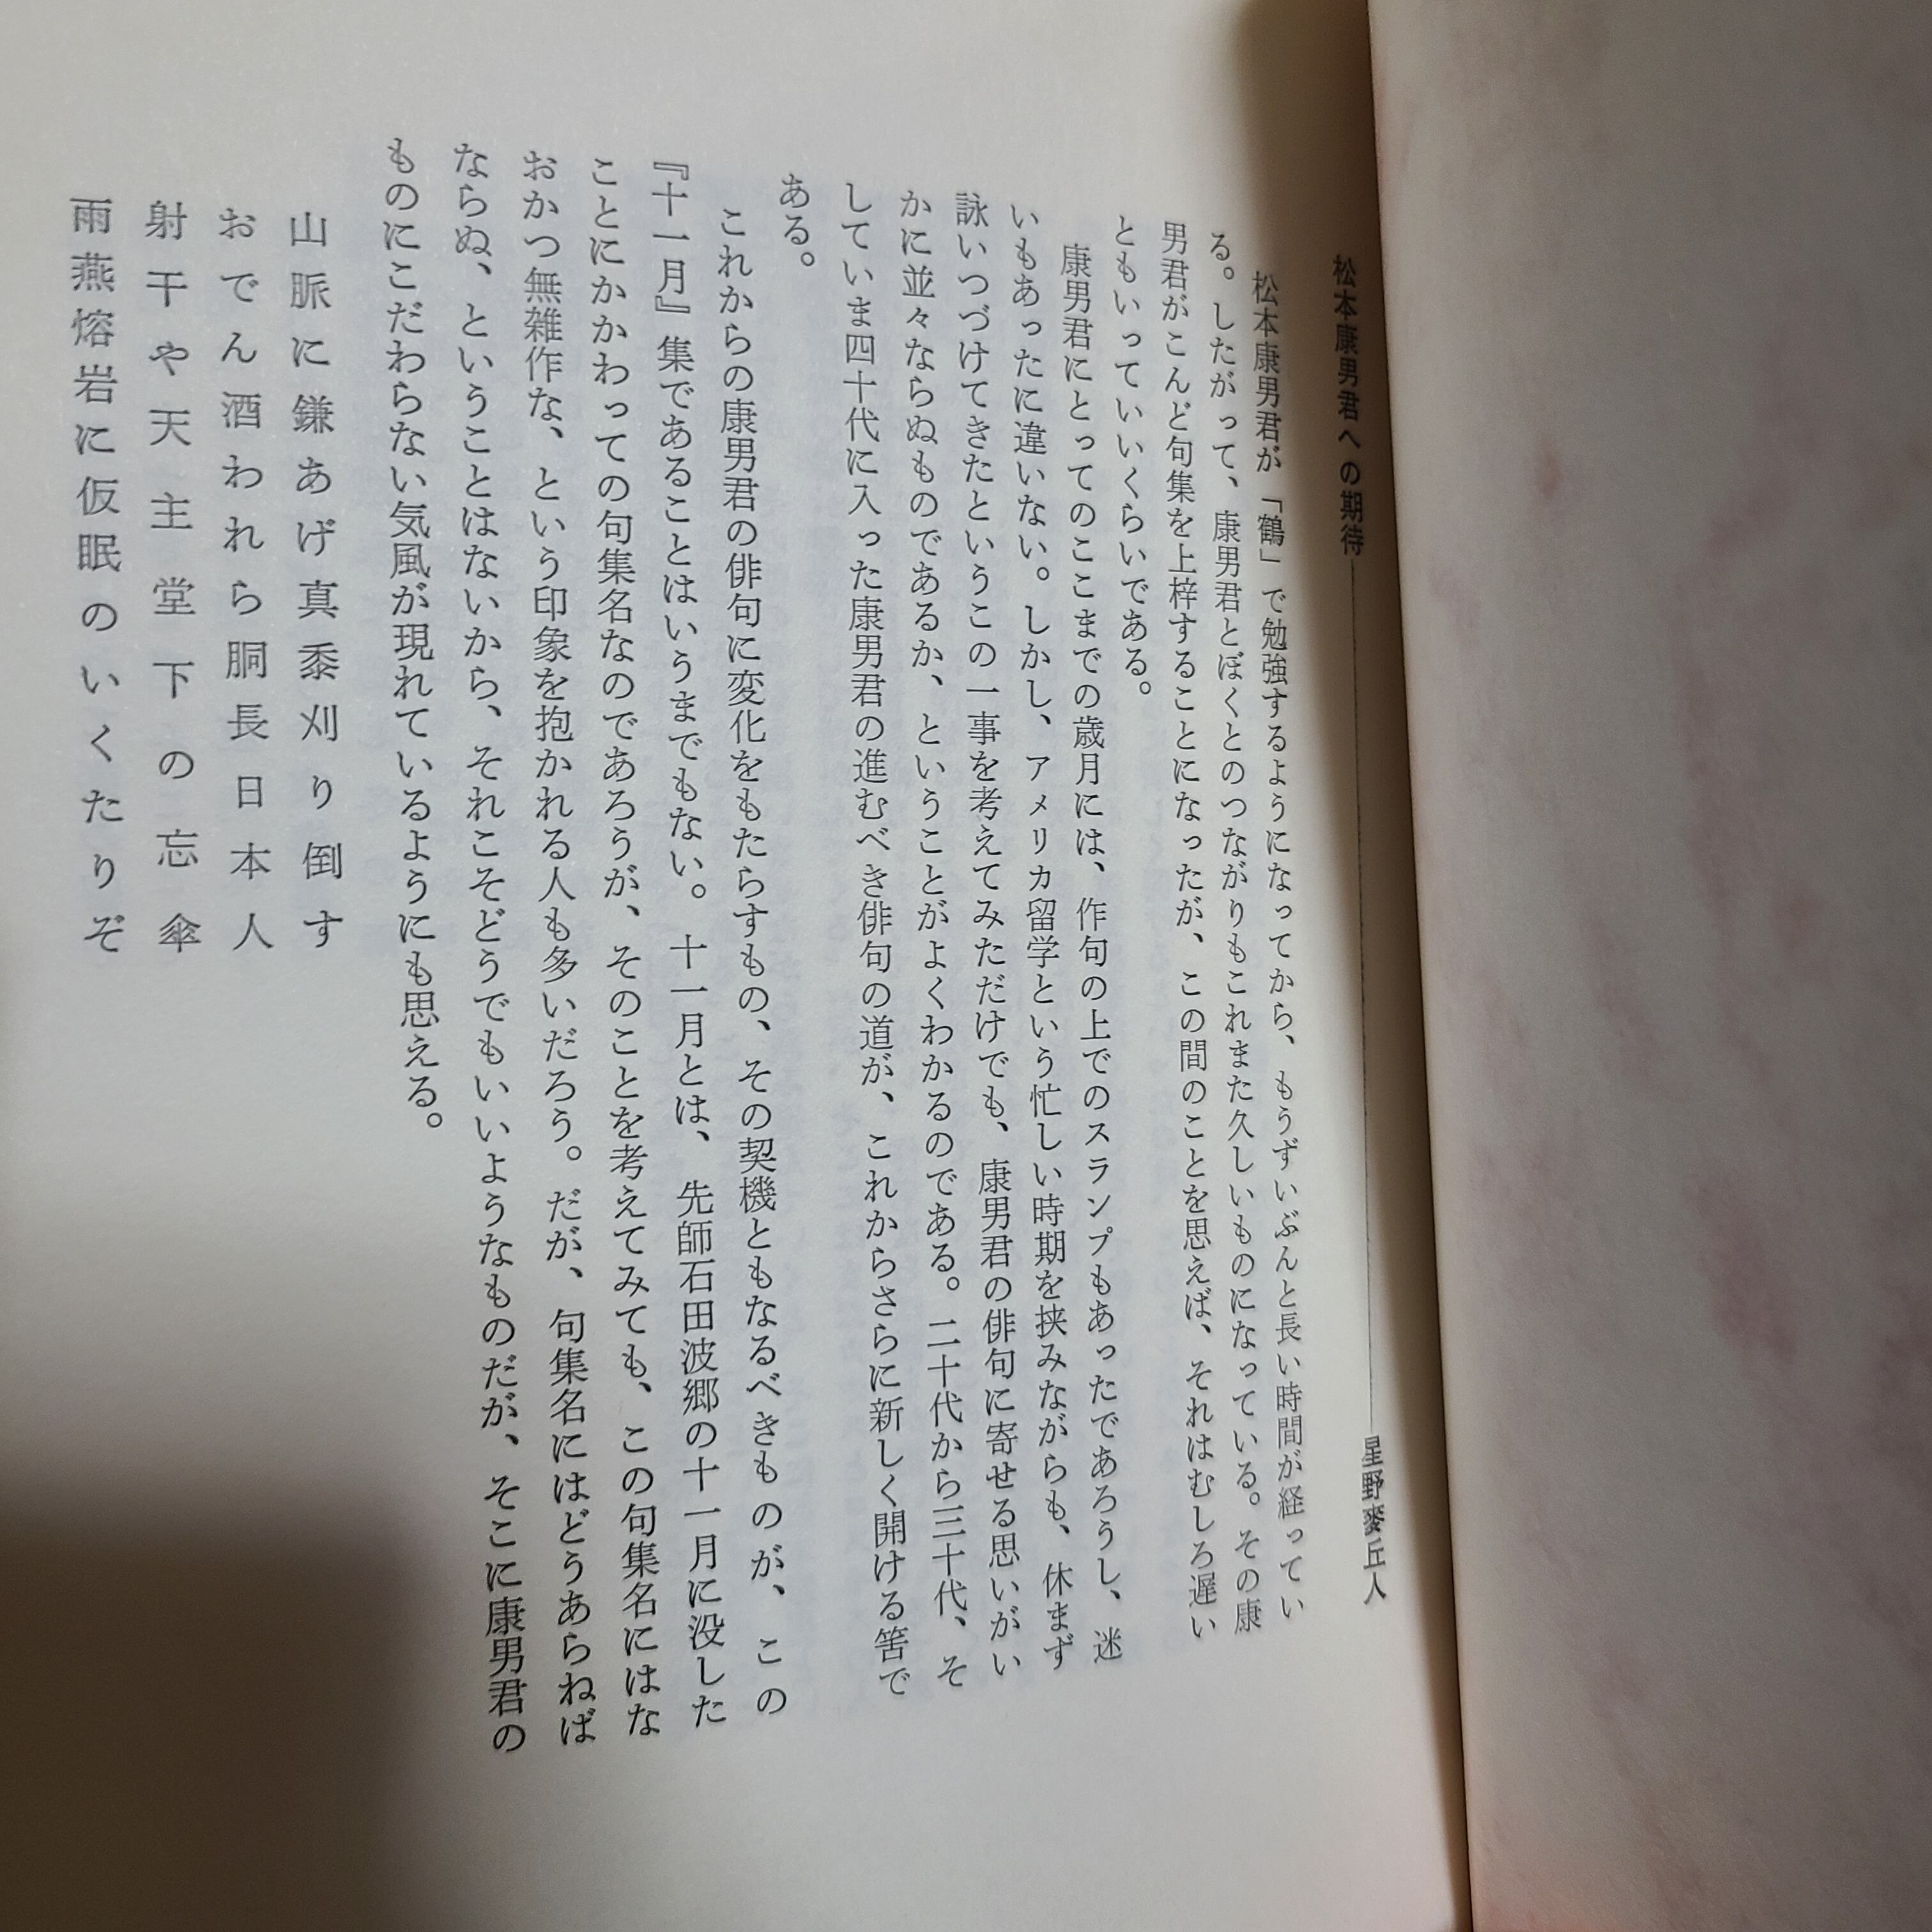 松本康男君への期待――星野麥丘人
松本康男君が「鶴」で勉強するようになってから、もうずいぶんと長い時間が経ってい
る。したがって、康男君とぼくとのつながりもこれまた久しいものになっている。その康
男君がこんど句集を上梓することになったが、この間のことを思えば、それはむしろ遅い
ともいっていいくらいである。
康男君にとってのここまでの歳月には、作句の上でのスランプもあったであろうし、迷
いもあったに違いない。しかし、アメリカ留学という忙しい時期を挟みながらも、休まず
詠いつづけてきたというこの一事を考えてみただけでも、康男君の俳句に寄せる思いがい
かに並々ならぬものであるか、ということがよくわかるのである。二十代から三十代、そ
していま四十代に入った康男君の進むべき俳句の道が、これからさらに新しく開ける筈で
ある。
これからの康男君の俳句に変化をもたらすもの、その契機ともなるべきものが、この
『十一月』集であることはいうまでもない。十一月とは、先師石田波郷の十一月に没した
ことにかかわっての句集名なのであろうが、そのことを考えてみても、この句集名にはな
おかつ無雑作な、という印象を抱かれる人も多いだろう。だが、句集名にはどうあらねば
ならぬ、ということはないから、それこそどうでもいいようなものだが、そこに康男君の
ものにこだわらない気風が現れているようにも思える。
山脈に鎌あげ真黍刈り倒す
おでん酒われら胴長日本人
射干や天主堂下の忘傘
雨燕熔岩に仮眠のいくたりぞ